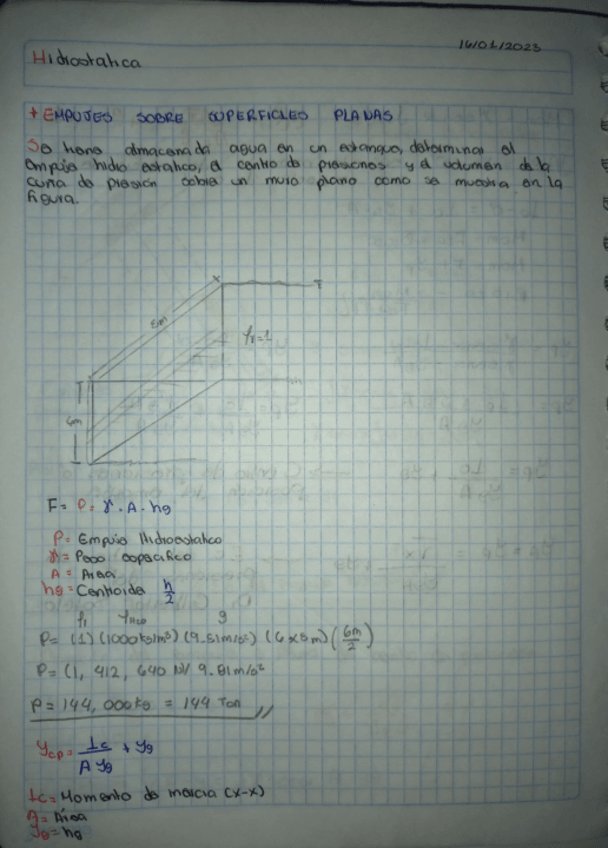 16/01/2023
Hidrostatica
+ EMPUJES SOBRE SUPERFICIES PLANAS
Se tiene almacenada agua en un estanque, determinar el
empuje hidro estatico, el centro de presiones y el volumen de la
cuña de presion sobre un muro plano como se muestra en la
figura.
x
8m
γr=1
6m
F= P= γ . A . hg
P= Empuje Hidroestatico
γ= Peso especifico
A = Area
hg = Centroide h/2
g
P= (1) (1000kg/m³) (9.81m/s²) (6x8m) (6m/2)
P= (1, 412, 640 N/ 9.81m/s²
P= 144, 000kg = 144 Ton
Ycp= Ic/A Yg + Yg
Ic= Momento de inercia (x-x)
A= Área
Yg= hg